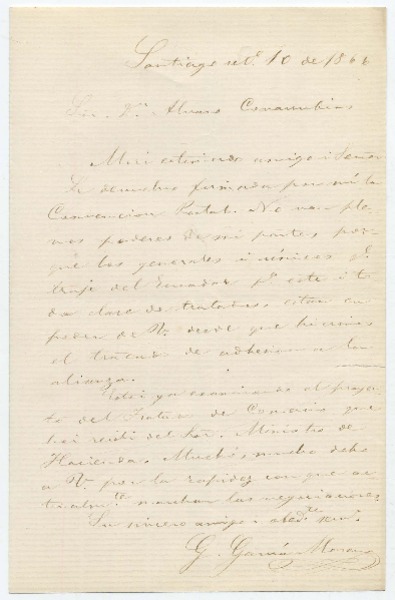 Santiago 10 de 1866
Sor. Dn. Alvaro Covarrubias
Mui estimado amigo i Señor
Le devuelvo firmada por mí la
Convencion Postal. No van ple-
nos poderes de mi parte, por-
qué los generales i únicos qe.
traje del Ecuador pa. este i to
da clase de tratados están en
poder de V. desde que hicimos
el tratado de adhesion a la
alianza.
Estoi ya examinando el proyec-
to del Tratado de Comercio que
hoi recibí del Sor. Ministro de
Hacienda. Mucho, mucho debo
a V. por la rapidez con que ac-
tualmte. marchan las negociaciones.
Su sincero amigo i
G. García Moreno